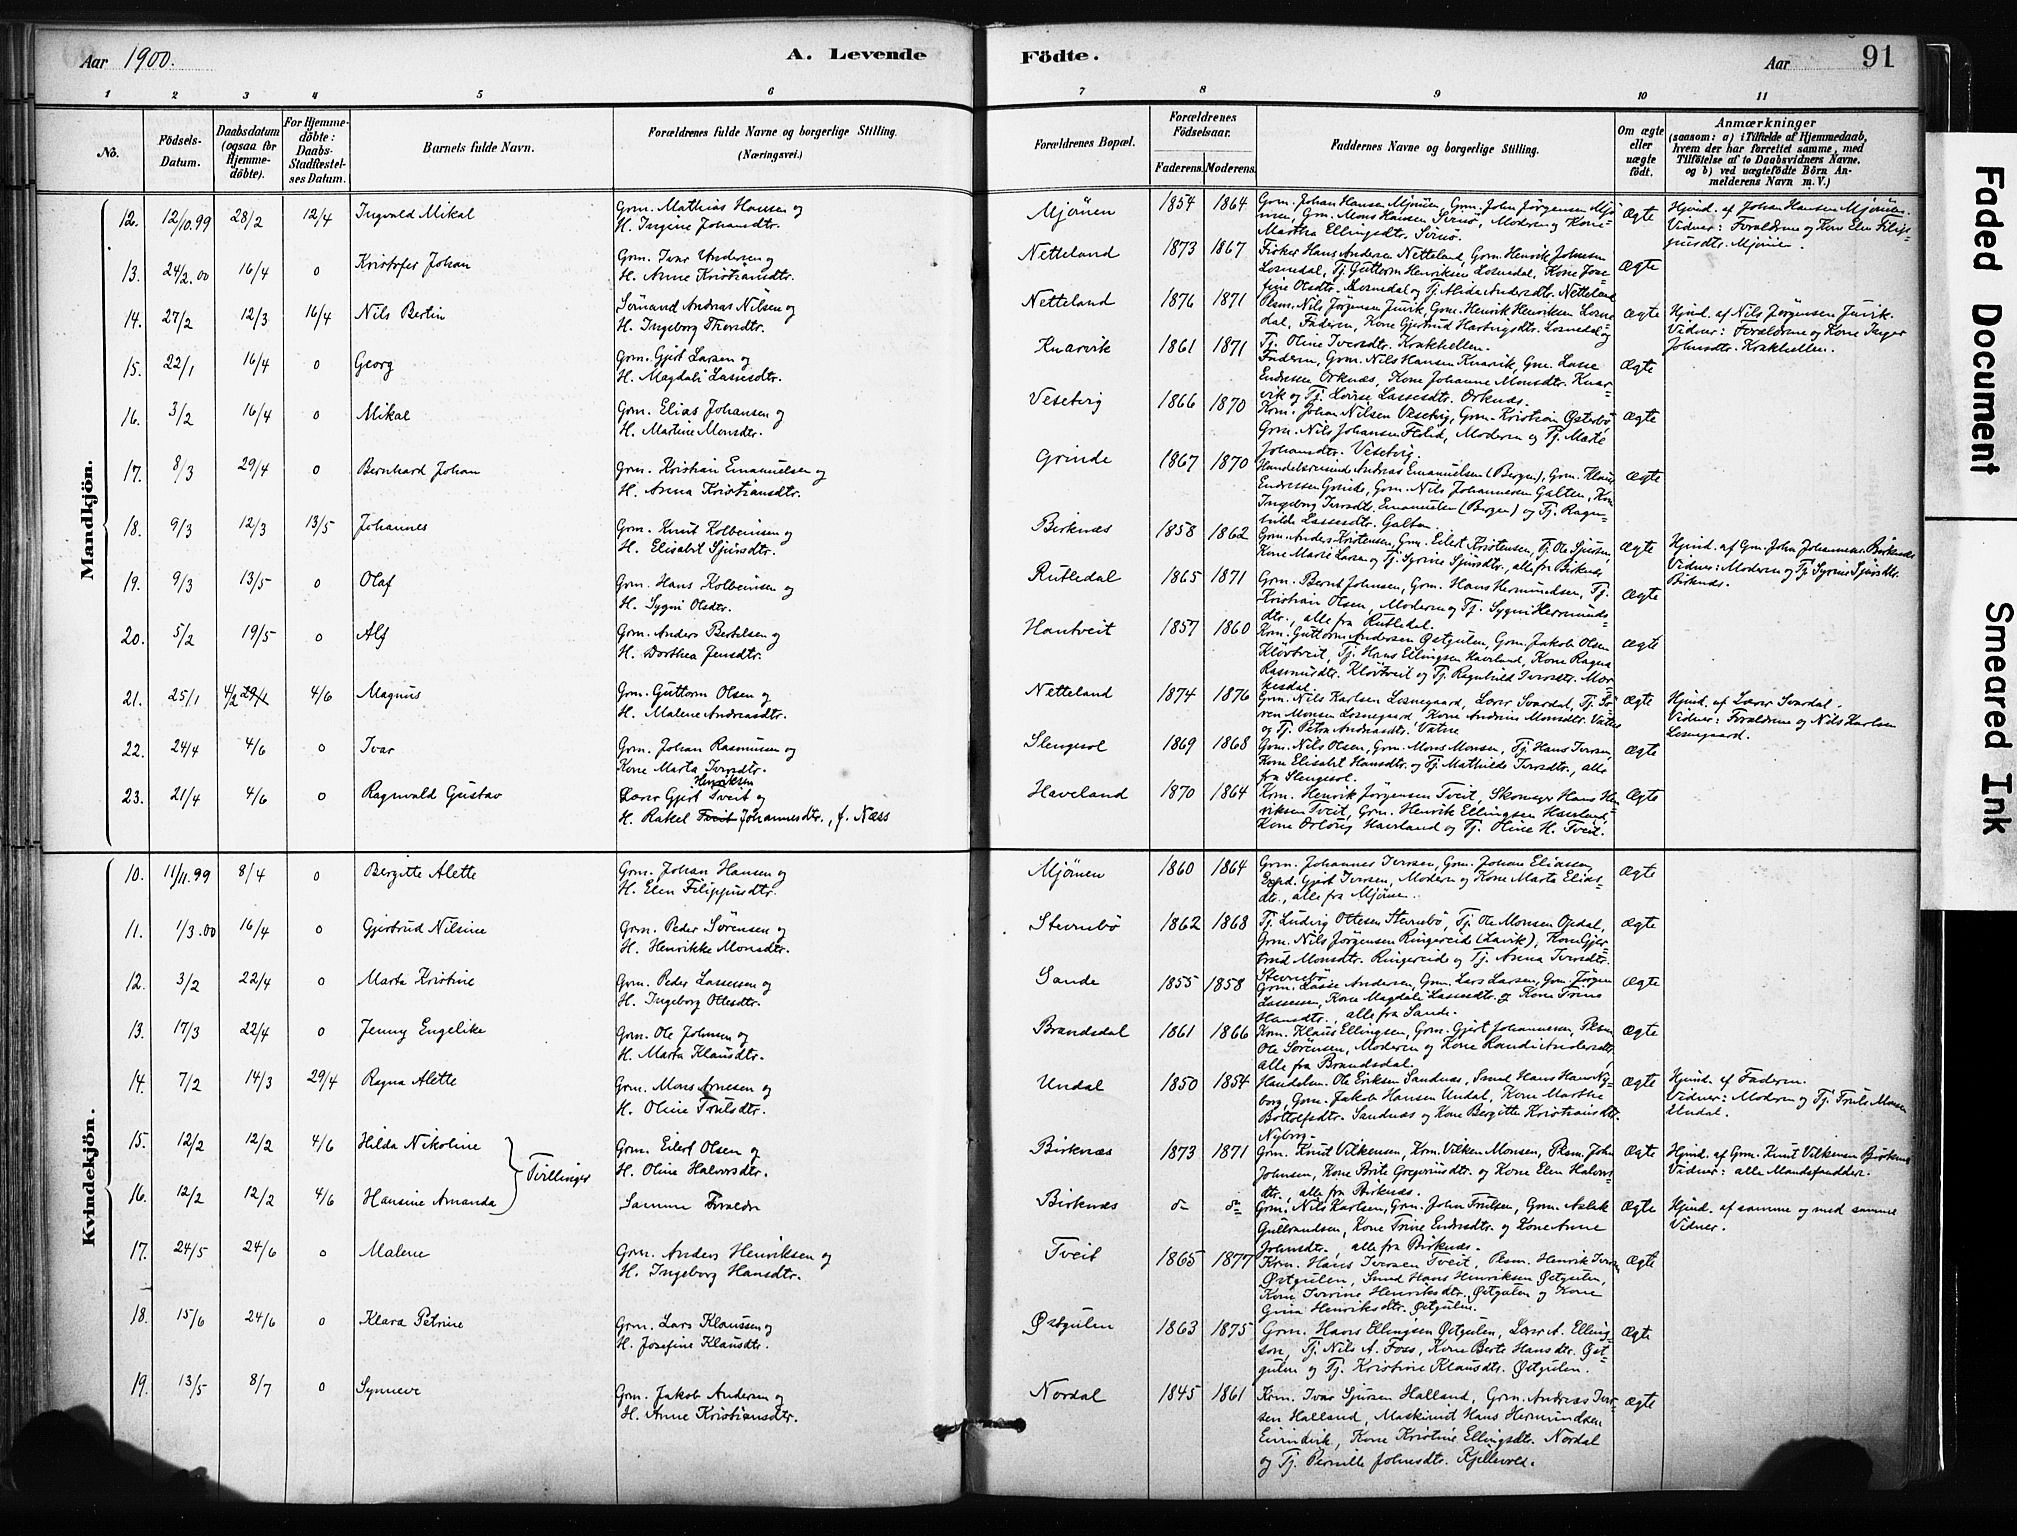 Aar 1900. A. Levende Födte. Aar 91
1 2 3 4 5 6 7 8 9 10 11
No. Födsels-Datum. Daabsdatum (ogsaa for Hjemmedöbte). For Hjemmedöbte: Daabs-Stadfæstelses Datum. Barnets fulde Navn. Forældrenes fulde Navne og borgerlige Stilling. (Næringsvei.) Forældrenes Bopæl. Forældrenes Födselsaar. Faderens. Moderens. Faddernes Navne og borgerlige Stilling. Om ægte eller uægte födt. Anmærkninger (saasom: a) i Tilfælde af Hjemmedaab, hvem der har forrettet samme, med Tilföielse af to Daabsvidners Navne, og b) ved uægtefödte Börn Anmelderens Navn m. V.)
Mandkjön.
12. 12/10.99 28/2 12/4 Ingvald Mikal Grm. Mathias Hansen og
H. Ingine Johansdtr. Mjönen 1854 1864 Grm. Johan Hansen Mjönen, Grm. John Jörgensen Mjö
nen, Grm. Mons Hansen Sernö, Moderen og Kone
Martha Ellingsdtr. Sernö. Ægte Hjmd. af Johan Hansen Mjönen.
Vidner: Forældrene og Kone Elen Filip-
pusdtr. Mjönen.
13. 24/2.00 16/4 0 Kristofer Johan Grm. Ivar Andersen og
H. Anne Kristiansdtr. Netteland 1873 1867 Fisker Hans Andersen Netteland, Grm. Henrik Johnsen
Losnedal, Tj. Guttorm Henriksen Losnedal, Kone Jose-
fine Olsdtr. Losnedal og Tj. Alida Andersdtr. Netteland Ægte
14. 27/2 12/3 16/4 Nils Bertin Sömand Andreas Nilsen og
H. Ingeborg Thorsdtr. Netteland 1876 1871 Plsm. Nils Jörgensen Juvik, Grm. Henrik Henriksen Losne-
dal, Faderen, Kone Gjertrud Hartvigsdtr. Losnedal og
Tj. Oline Iversdtr. Krakhellen. Ægte Hjmd. af Nils Jörgensen Juvik.
Vidner: Forældrene og Kone Inger
Johnsdtr. Krakhellen.
15. 22/1 16/4 0 Georg Grm. Gjert Larsen og
H. Magdali Lassesdtr. Knarvik 1861 1871 Faderen, Grm. Nils Hansen Knarvik, Grm. Lasse
Endresen Orknæs, Kone Johanne Monsdtr. Knar-
vik og Tj. Lovise Lassesdtr. Orknæs. Ægte
16. 3/2 16/4 0 Mikal Grm. Elias Johansen og
H. Martine Monsdtr. Vesetvig 1866 1870 Krm. Johan Nilsen Vesetvig, Grm. Kristian Österbö,
Grm. Nils Johansen Flolid, Moderen og Tj. Marte
Johansdtr. Vesetvig. Ægte
17. 8/3 29/4 0 Bernhard Johan Grm. Kristian Emanuelsen og
H. Anna Kristiansdtr. Grinde 1867 1870 Handelsreisend Andreas Emanuelsen (Bergen), Grm. Klaus
Endresen Grinde, Grm. Nils Johannesen Galten, Kone
Ingeborg Iversdtr. Emanuelsen (Bergen) og Tj. Ragn-
hilde Lassesdtr. Galten. Ægte
18. 9/3 12/3 13/5 Johannes Grm. Knut Kolbeinsen og
H. Elisabet Sjursdtr. Birknæs 1858 1862 Grm. Anders Kristensen, Grm. Eilert Kristensen, Tj. Ole Sjursen,
Kone Marie Larsen og Tj. Syrine Sjursdtr., alle fra Birknæs Ægte Hjmd. af Grm. John Johannesen Birknæs
Vidner: Moderen og Tj. Syrine Sjursdtr.
Birknæs.
19. 9/3 13/5 0 Olaf Grm. Hans Kolbeinsen og
H. Sygni Olsdtr. Rutledal 1865 1871 Grm. Bernt Johnsen, Grm. Hans Hermundsen, Tj.
Kristian Olsen, Moderen og Tj. Sygni Hermunds-
dtr., alle fra Rutledal. Ægte
20. 5/2 19/5 0 Alf Grm. Anders Bertelsen og
H. Dorthea Jensdtr. Hantveit 1857 1860 Krm. Guttorm Andersen Östgulen, Grm. Jakob Olsen
Klövtveit, Tj. Hans Ellingsen Haveland, Kone Ragna
Rasmusdtr. Klövtveit og Tj. Ragnhild Iversdtr. Mor-
kesdal. Ægte
21. 25/1 4/2 29/1 4/6 Magnus Grm. Guttorm Olsen og
H. Malene Andreasdtr. Netteland 1874 1876 Grm. Nils Karlsen Losnegaard, Lærer Svardal, Tj. Sö-
ren Monsen Losnegaard, Kone Andrine Monsdtr. Vatne
og Tj. Petra Andreasdtr. Vatne Ægte Hjmd. af Lærer Svardal.
Vidner: Forældrene og Nils Karlsen
Losnegaard.
22. 24/4 4/6 0 Ivar Grm. Johan Rasmussen og
Kone Marta Iversdtr. Slengesol 1869 1868 Grm. Nils Olsen, Grm. Mons Monsen, Tj. Hans Iversen,
Kone Elisabet Hansdtr. og Tj. Mathilde Iversdtr., alle
fra Slengesol. Ægte
23. 21/4 4/6 0 Ragnvald Gustav Lærer Gjert Henriksen Tveit og
H. Rakel Tveit Johannesdtr., f. Næss Haveland 1870 1864 Krm. Henrik Jörgensen Tveit, Skomager Hans Hen-
riksen Tveit, Grm. Henrik Ellingsen Haveland,
Kone Orlöug Haverland og Tj. Oline H. Tveit. Ægte
Kvindekjön.
10. 11/11.99 8/4 0 Bergitte Alette Grm. Johan Hansen og
H. Elen Filippusdtr. Mjönen 1860 1864 Grm. Johannes Iversen, Grm. Johan Eliassen,
Exped. Gjert Iversen, Moderen og Kone Marta Elias-
dtr., alle fra Mjönen. Ægte
11. 1/3.00 16/4 0 Gjertrud Nilsine Grm. Peder Sörensen og
H. Henrikke Monsdtr. Stevnebö 1862 1868 Tj. Ludvig Ottesen Stevnebö, Tj. Ole Monsen Opdal,
Grm. Nils Jörgensen Ringereid (Lavik), Kone Gjer-
trud Monsdtr. Ringereid og Tj. Anna Iversdtr.
Stevnebö Ægte
12. 3/2 22/4 0 Marta Kristine Grm. Peder Lassesen og
H. Ingeborg Ottesdtr. Sande 1855 1858 Grm. Lasse Andersen, Grm. Lars Larsen, Grm. Jörgen
Lassesen, Kone Magdali Lassesdtr. og Kone Trine
Hansdtr., alle fra Sande. Ægte
13. 17/3 22/4 0 Jenny Engelike Grm. Ole Johnsen og
H. Marta Klausdtr. Brandsdal 1861 1866 Krm. Klaus Ellingsen, Grm. Gjert Johannesen, Plsm.
Ole Sörensen, Moderen og Kone Randi Andersdtr,
alle fra Brandsdal. Ægte
14. 7/2 14/3 29/4 Ragna Alette Grm. Mons Arnesen og
H. Oline Trulsdtr. Undal 1850 1854 Handelsm. Ole Eriksen Sandnæs, Smed Hans Hansen Ny-
borg, Grm. Jakob Hansen Undal, Kone Marthe
Bottolfsdtr. Sandnæs og Kone Bergitte Kristiansdtr.
Nyborg. Ægte Hjmd. af Faderen.
Vidner: Moderen og Tj. Truls Monsen
Undal.
15. 12/2 12/2 4/6 Hilda Nikoline Tvillinger Grm. Eilert Olsen og
H. Oline Halvorsdtr. Birknæs 1873 1871 Grm. Knut Vilkensen, Krm. Vilken Monsen, Plsm. John
Johnsen, Kone Brite Gregoriusdtr. og Kone Elen Halvors-
dtr., alle fra Birknæs. Ægte Hjmd. af Grm. Knut Vilkensen Birknæs
Vidner: alle Mandsfaddere.
16. 12/2 12/2 4/6 Hansine Amanda Samme Forældre Birknæs Grm. Nils Karlsen, Grm. John Trulsen, Grm. Aslak
Gulbrandsen, Kone Trine Endresdtr. og Kone Anne
Johnsdtr., alle fra Birknæs. Ægte Hjmd. af samme og med samme
Vidner.
17. 24/5 24/6 0 Malene Grm. Anders Henriksen og
H. Ingeborg Hansdtr. Tveit 1865 1877 Krm. Hans Iversen Tveit, Plsm. Henrik Iversen
Östgulen, Smed Hans Henriksen Östgulen,
Kone Iverine Henriksdtr. Östgulen og Kone
Gina Henriksdtr. Östgulen. Ægte
18. 15/6 24/6 0 Klara Petrine Grm. Lars Klaussen og
H. Josefine Klausdtr. Östgulen 1863 1875 Grm. Hans Ellingsen Östgulen, Lærer A. Elling-
sen, Tj. Nils A. Foss, Kone Berte Hansdtr. Öst-
gulen og Tj. Kristine Klausdtr. Östgulen. Ægte
19. 13/5 8/7 0 Synneve Grm. Jakob Andersen og
H. Anne Kristiansdtr. Nordal 1845 1861 Krm. Ivar Sjursen Halland, Grm. Andreas Iver-
sen Halland, Maskinist Hans Hermundsen
Eivindvik, Kone Kristine Ellingsdtr. Nordal
og Tj. Pernille Johnsdtr. Kjellevold. Ægte
Faded Document
Smeared Ink